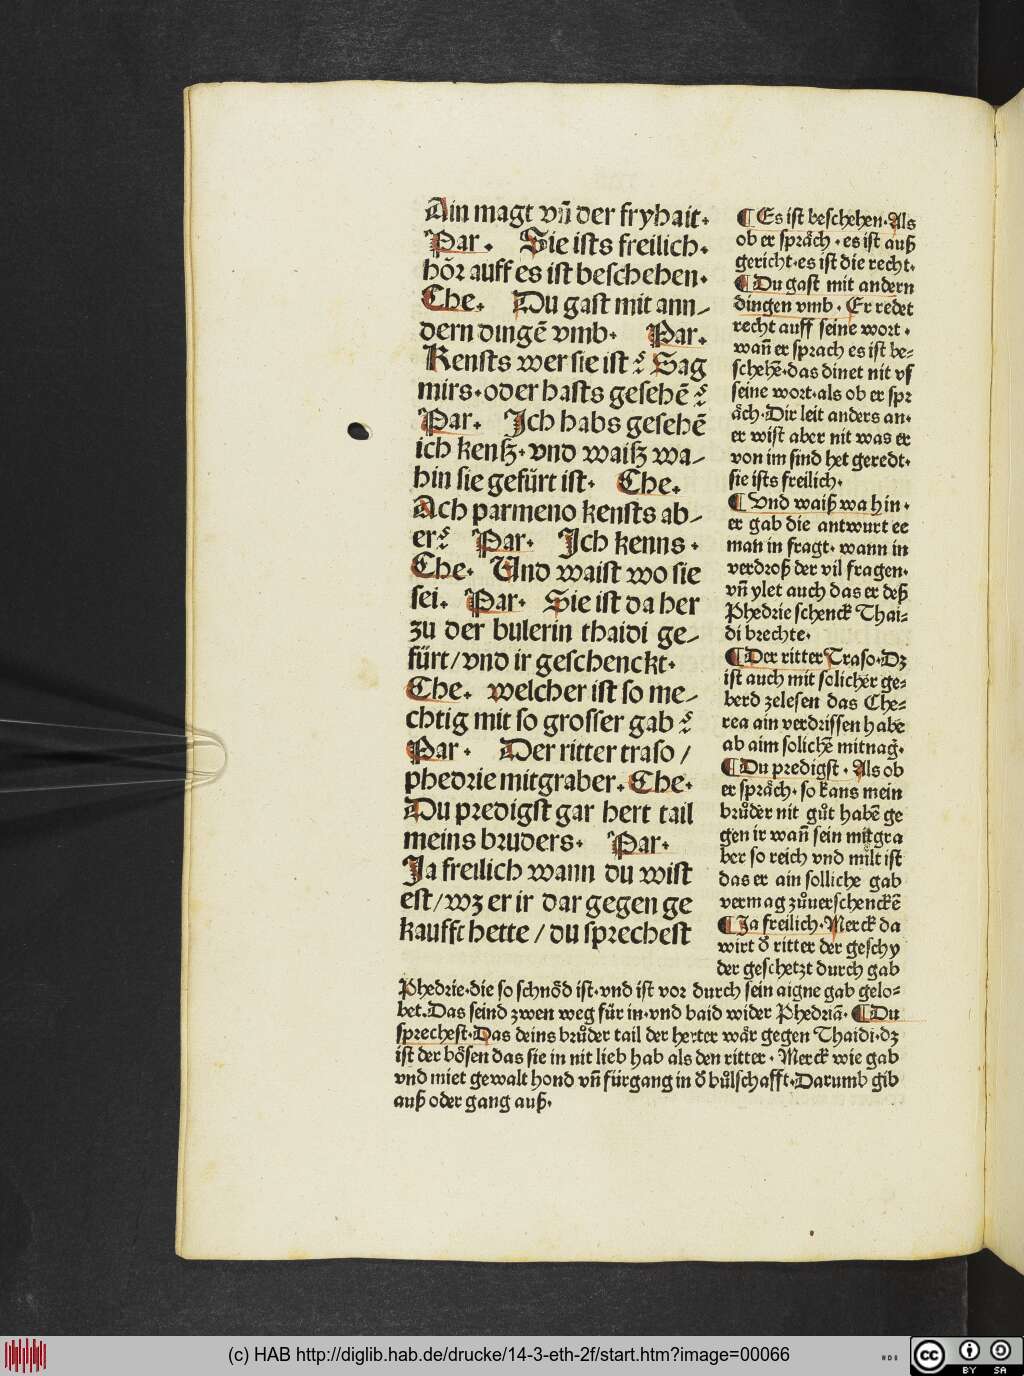 Ain magt vñ der fryhait.
Par. Sie ists freilich.
hör auff es ist beschehen.
Che. Du gast mit ann/
dern dingẽ vmb. Par.
Kensts wer sie ist? Sag
mirs. oder hasts gesehẽ?
Par. Ich habs gesehẽ
ich kenß. vnd waiß wa/
hin sie gefürt ist. Che.
Ach parmeno kensts ab/
er? Par. Ich kenns.
Che. Und waist wo sie
sei. Par. Sie ist da her
zu der bulerin thaidi ge/
fürt/ vnd ir geschenckt.
Che. welcher ist so me/
chtig mit so grosser gab?
Par. Der ritter traso/
phedrie mitgraber. Che.
Du predigst gar hert tail
meins bruders. Par.
Ja freilich wann du wist
est/ wz er ir dar gegen ge
kaufft hette/ du sprechest
¶ Es ist beschehen. Als
ob er spräch. es ist auß
gericht. es ist die recht.
¶ Du gast mit andern
dingen vmb. Er redet
recht auff seine wort.
wañ er sprach es ist be=
schehẽ. das dinet nit vf
seine wort. als ob er spr
äch. Dir leit anders an.
er wist aber nit was er
von im sind het geredt.
sie ists freilich.
¶ Vnd waiß wa hin.
er gab die antwurt ee
man in fragt. wann in
verdroß der vil fragen.
vñ ylet auch das er deß
Phedrie schenck Thai=
di brechte.
¶ Der ritter Traso. Dz
ist auch mit solicher ge=
berd zelesen das Che=
rea ain verdrissen habe
ab aim solichẽ mitnag̃.
¶ Du predigst. Als ob
er spräch. so kans mein
brůder nit gůt habẽ ge
gen ir wañ sein mitgra
ber so reich vnd milt ist
das er ain solliche gab
vermag zůuerschenckẽ
¶ Ja freilich. Merck da
wirt d̾ ritter der geschy
der geschetzt durch gab
Phedrie. die so schnöd ist. vnd ist vor durch sein aigne gab gelo=
bet. Das seind zwen weg für in. vnd baid wider Phedriã. ¶ Du
sprechest. Das deins brůder tail der herter wär gegen Thaidi. dz
ist der bösen das sie in nit lieb hab als den ritter. Merck wie gab
vnd miet gewalt hond vñ fürgang in d̾ bůlschafft. Darumb gib
auß oder gang auß.
(c) HAB http://diglib.hab.de/drucke/14-3-eth-2f/start.htm?image=00066
HAB
cc BY SA